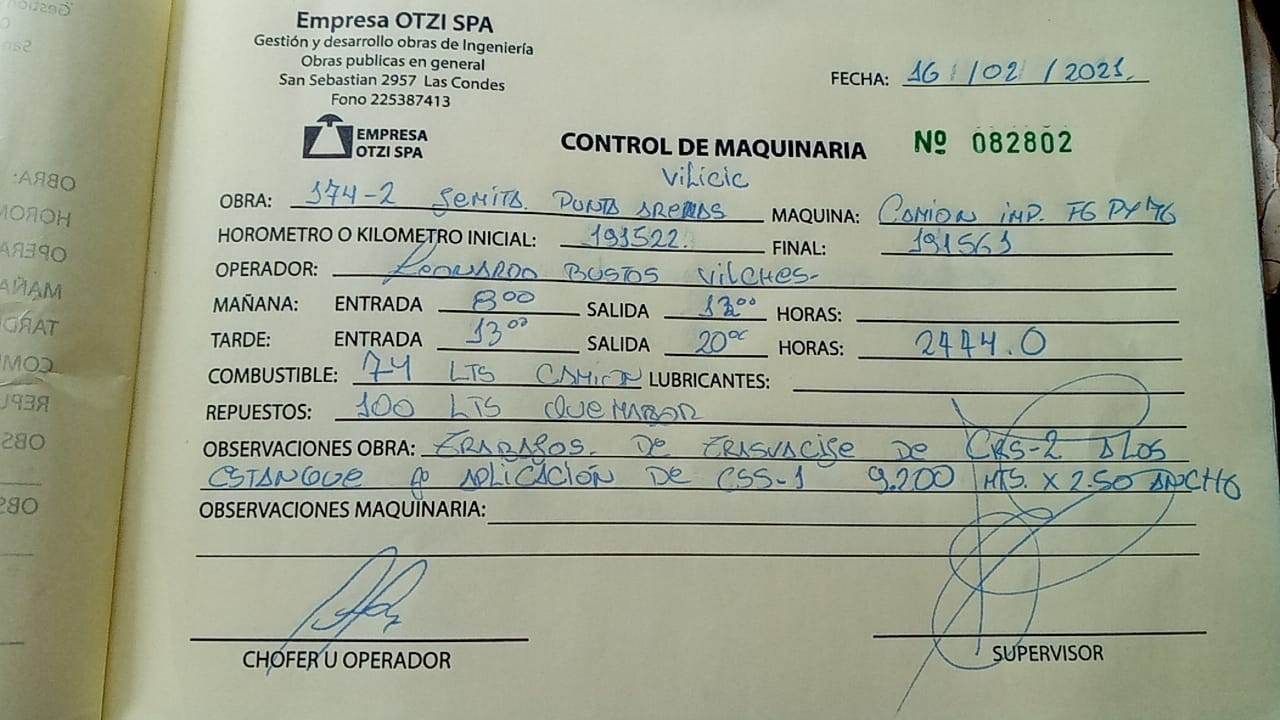 Empresa OTZI SPA
Gestión y desarrollo obras de Ingeniería
Obras publicas en general
San Sebastian 2957 Las Condes
Fono 225387413
FECHA: 16 / 02 / 2021.
EMPRESA
OTZI SPA
CONTROL DE MAQUINARIA Nº 082802
Vilicic
OBRA: 174-2 Semita. Punta Arenas MAQUINA: Camion imp. FG PY 76
HOROMETRO O KILOMETRO INICIAL: 191522. FINAL: 191561
OPERADOR: Leonardo Bustos Vilches-
MAÑANA: ENTRADA 8:00 SALIDA 12:00 HORAS:
TARDE: ENTRADA 13:00 SALIDA 20:00 HORAS: 2444.0
COMBUSTIBLE: 74 LTS Camion LUBRICANTES:
REPUESTOS: 100 LTS Quemador
OBSERVACIONES OBRA: Trabajos. De Trasvacije De CRS-2 a los
Estanque Aplicación De CSS-1 9.200 Mts. x 2.50 Ancho
OBSERVACIONES MAQUINARIA:
CHOFER U OPERADOR
SUPERVISOR
OBRA:
HOROM
OPERA
MAÑA
TARD
COM
REPU
OBS
OBS